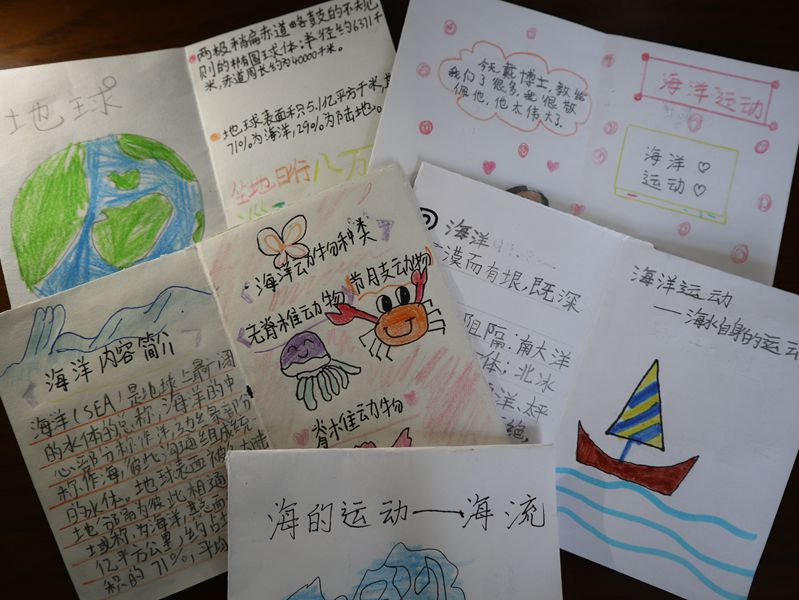 地球
两极稍扁赤道略鼓的不规
则的椭圆球体:半径约6371千
米,赤道周长约为40000千米。
地球表面积5.1亿平方千米,
71%为海洋,29%为陆地。
坐地日行八万
今天,戴博士,教给
我们了很多,我很敬
佩他,他太伟大了。
海洋运动
海洋
运动
海洋内容简介
海洋(SEA)是地球上最广阔
的水体的总称,海洋的中
心部分称作洋,边缘部分
称作海,彼此沟通组成统
的水体。地球表面被
地分隔为彼此相通
域称为海洋,其总面
亿平方公里,约占
积的71%,平均
海洋动物种类
节肢动物
无脊椎动物
脊椎动物
海洋
漠而有垠,既深
阻隔:南大洋
体,北冰
洋、太平
绝,
海洋运动
——海水自身的运动
海的运动——海流